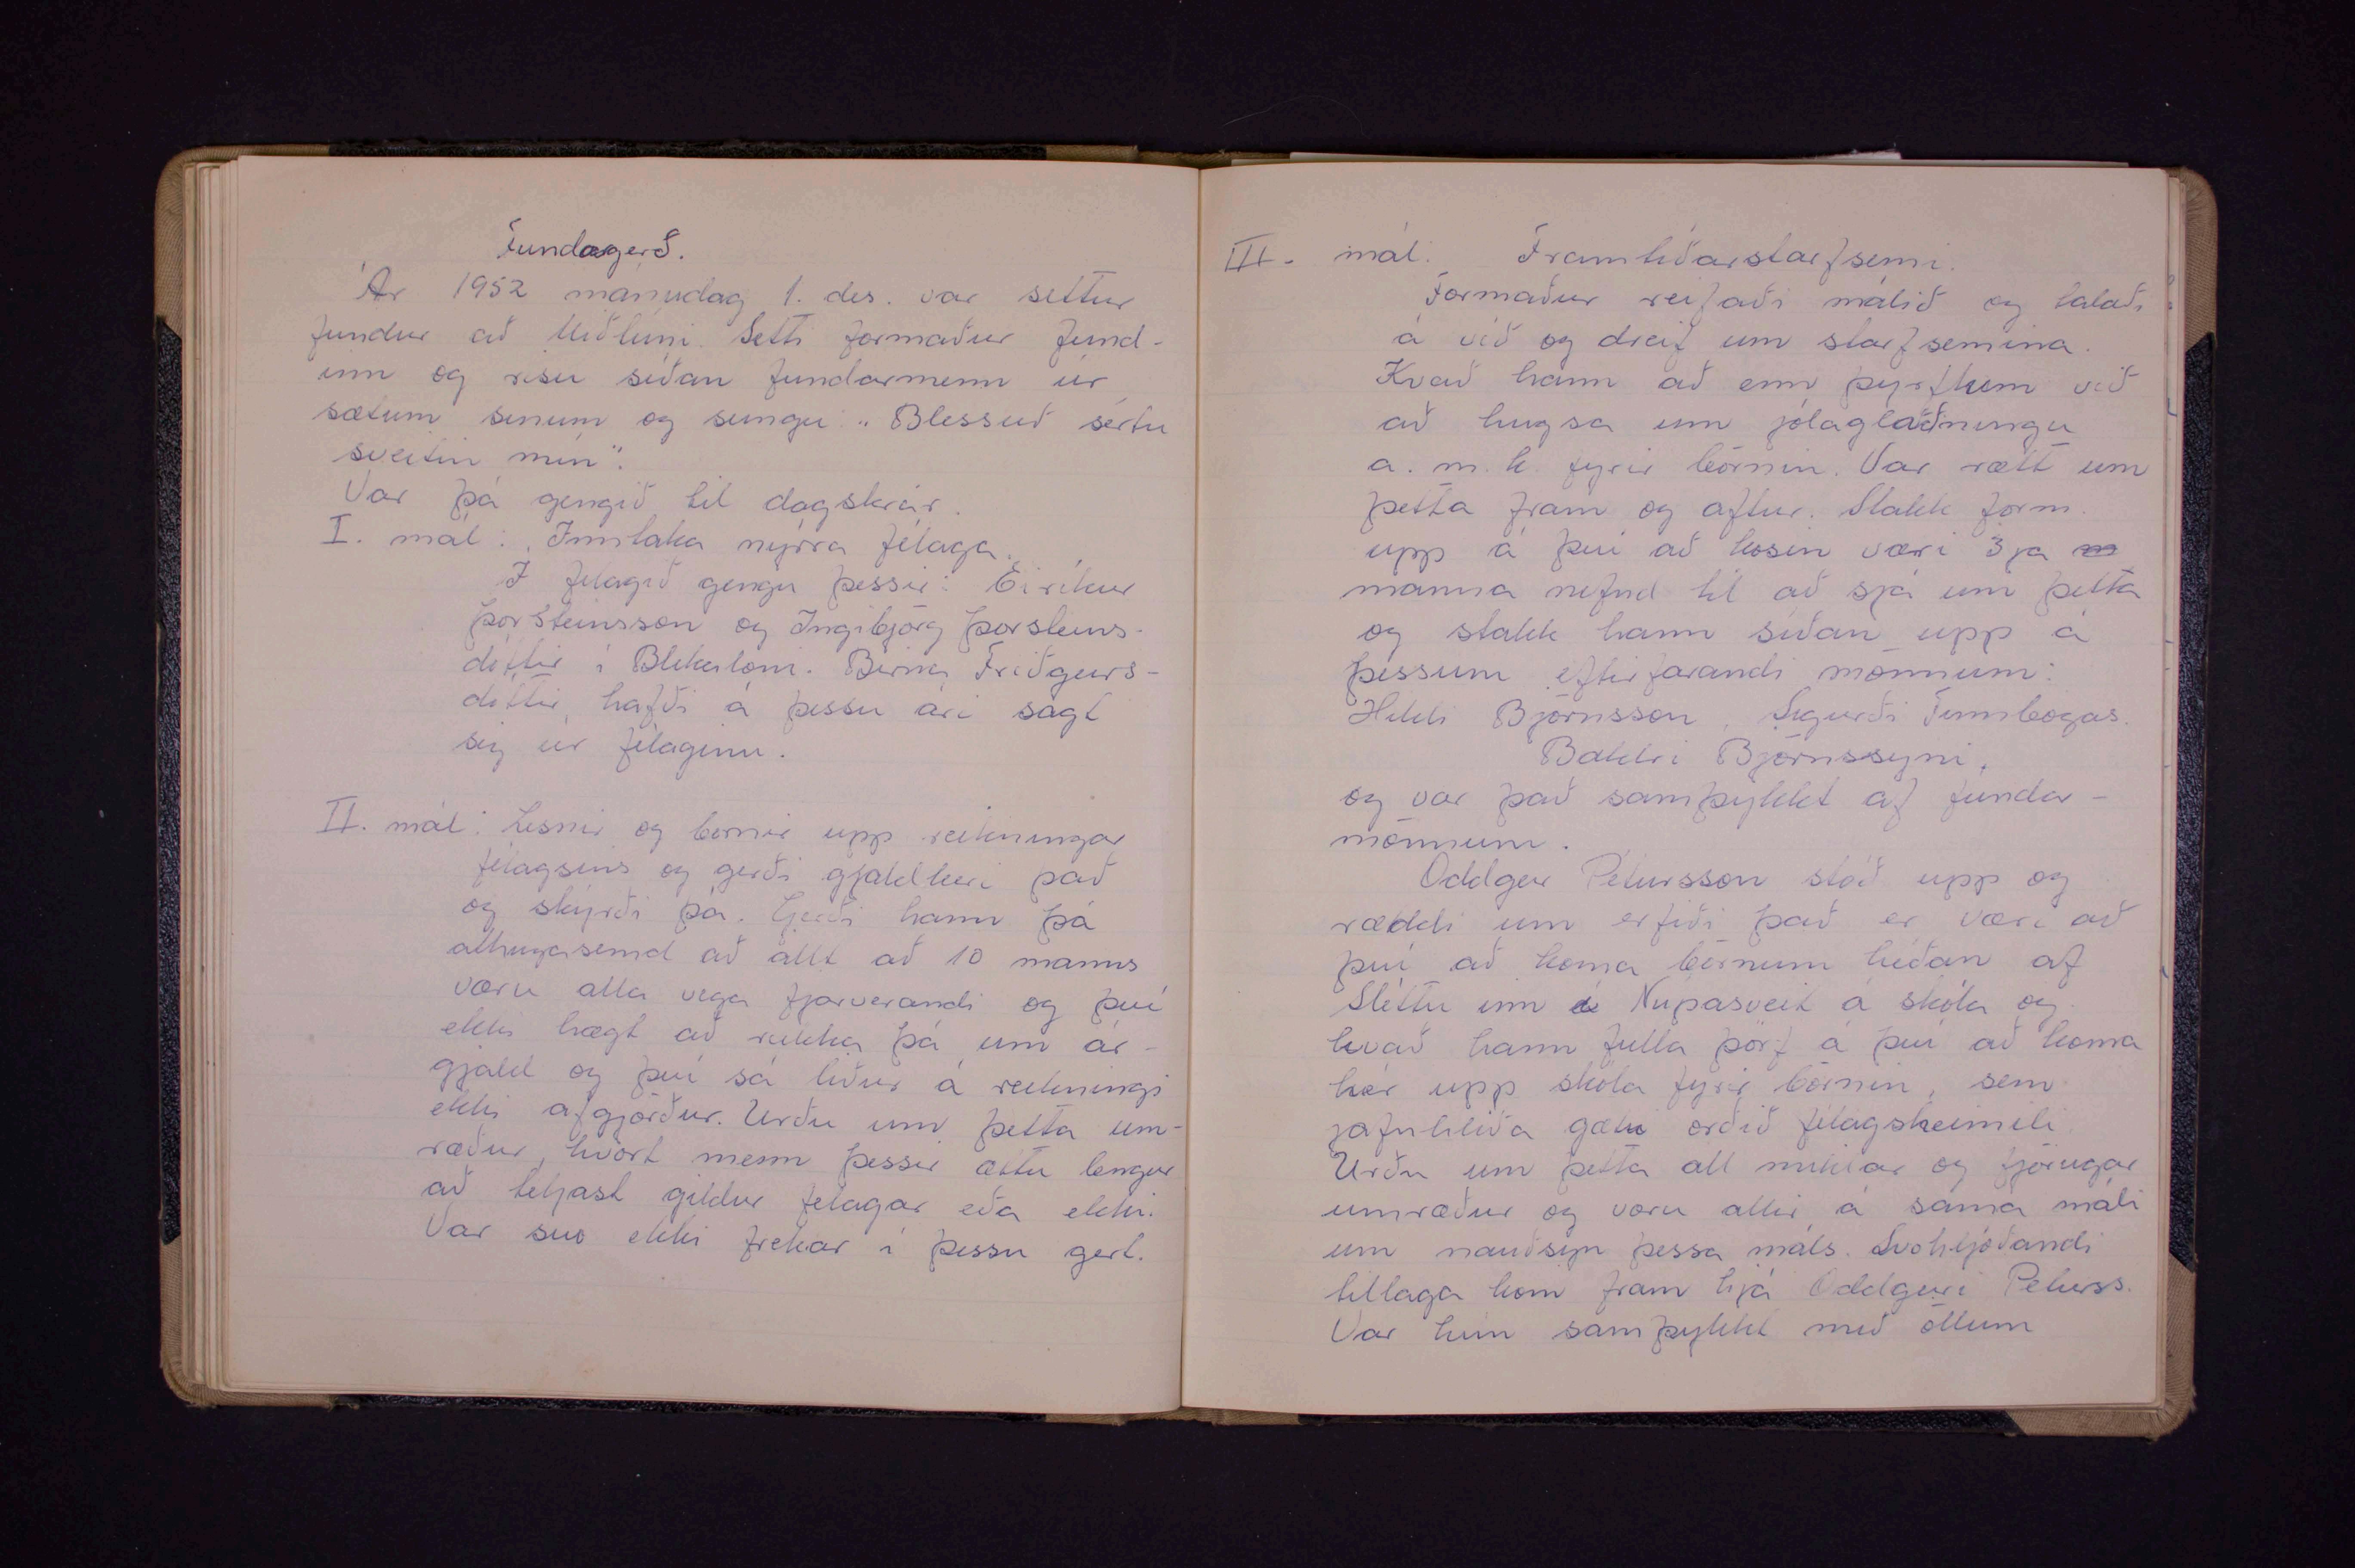 Fundargerð.
Ár 1952 mánudag 1. des. var settur
fundur að Miðtúni. Setti formaður fund-
inn og risu síðan fundarmenn úr
sætum sínum og sungu: "Blessuð sértu
sveitin mín".
Var þá gengið til dagskrár.
I. mál: Inntaka nýrra félaga.
Í félagið gengu þessir: Eiríkur
Þorsteinsson og Ingibjörg Þorsteins-
dóttir í Blikalóni. Birna Friðgeirs-
dóttir, hafði á þessu ári sagt
sig úr félaginu.
II. mál: Lesnir og bornir upp reikningar
félagsins og gerði gjaldkeri það
og skýrði þá. Gerði hann þá
athugasemd að allt að 10 manns
væru alla vega fjarverandi og því
ekki hægt að rukka þá um ár-
gjald og því sá liður á reikningi
ekki afgjörður. Urðu um þetta um-
ræður, hvort menn þessir ættu lengur
að teljast gildur félagar eða ekki.
Var svo ekki frekar í þessu gert.
III. mál: Framtíðarstarfsemi.
Formaður reifaði málið og talaði
á við og dreif um starfsemina.
Kvað hann að enn þyrftum við
að hugsa um jólaglaðningu
a. m. k. fyrir börnin. Var rætt um
þetta fram og aftur. Stakk form.
upp á því að kosin væri 3ja
manna nefnd til að sjá um þetta
og stakk hann síðan upp á
þessum eftirfarandi mönnum:
Hildi Björnsson, Sigurði Finnbogas.
Baldri Björnssyni,
og var það samþykkt af fundar-
mönnum.
Oddgeir Pétursson stóð upp og
ræddi um erfiði það er væri að
því að koma börnum héðan af
Sléttu inn á Núpasveit á skóla og
kvað hann fulla þörf á því að koma
hér upp skóla fyrir börnin, sem
jafnhliða gæti orðið félagsheimili.
Urðu um þetta all miklar og fjörugar
umræður og voru allir á sama máli
um nauðsyn þessa máls. Svohljóðandi
tillaga kom fram hjá Oddgeiri Péturss.
Var hún samþykkt með öllum